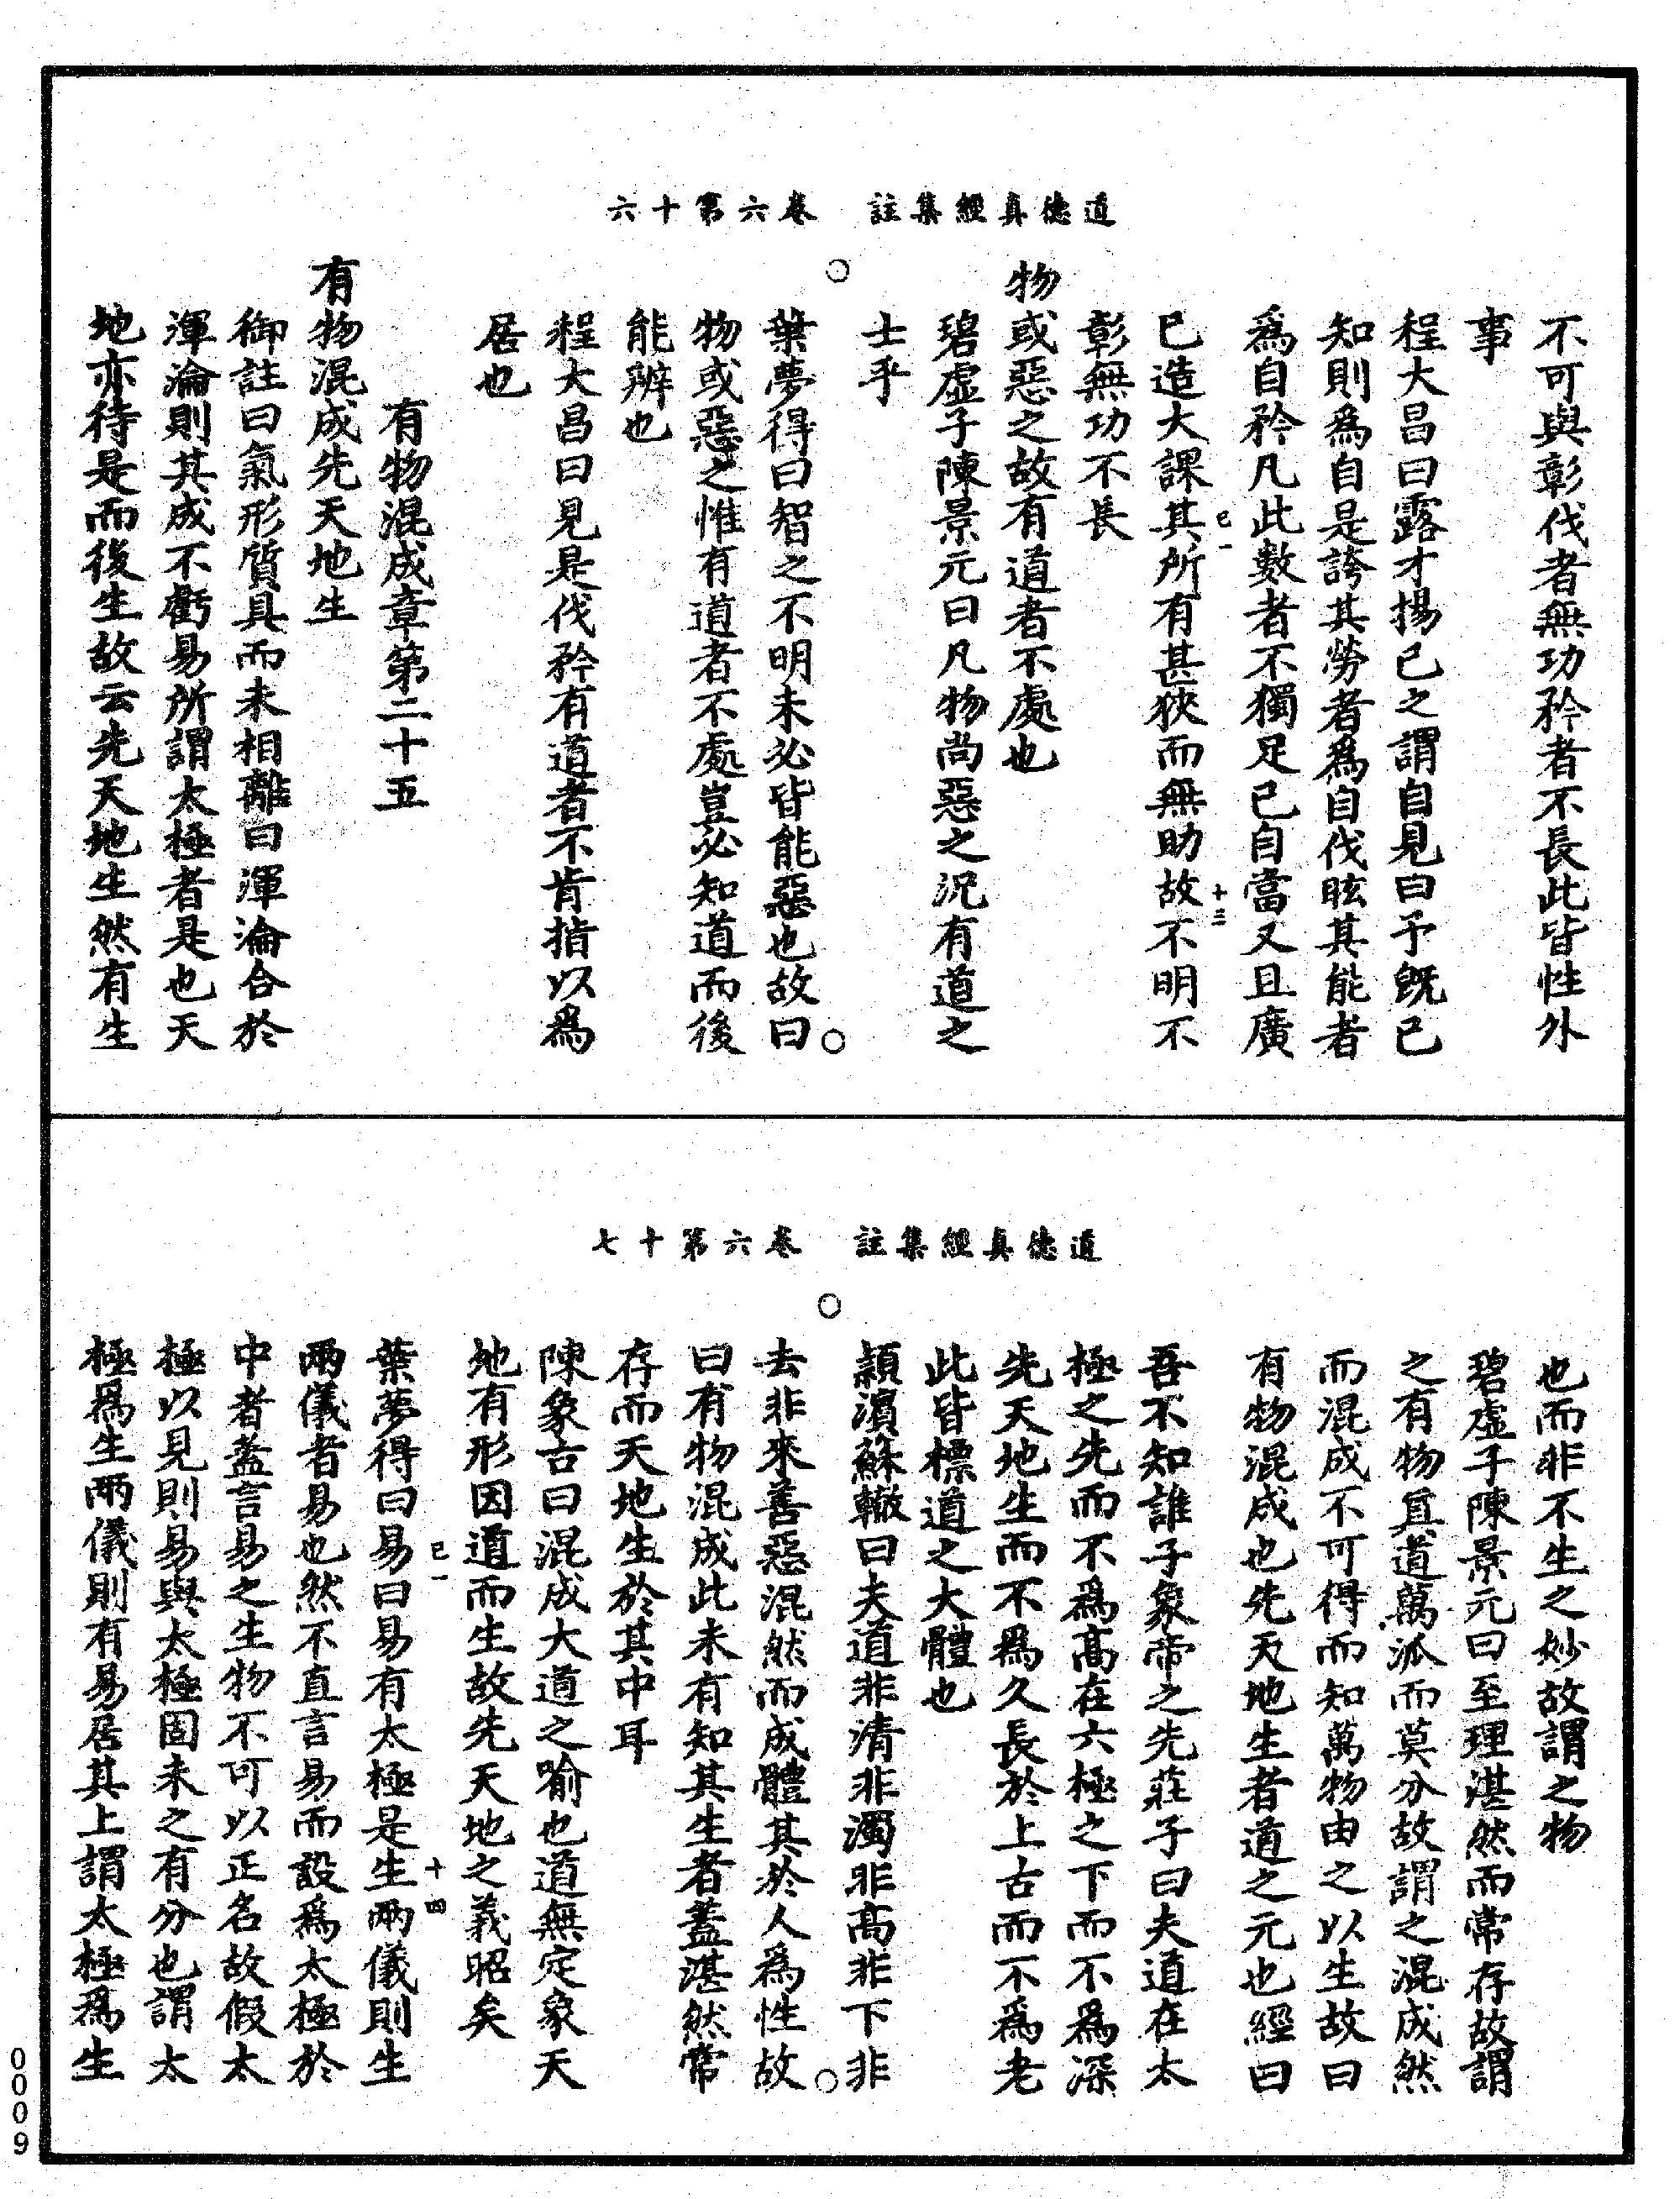 道德真經集註　卷六第十六
不可與彰伐者無功矜者不長此皆性外
事
程大昌曰露才揚己之謂自見曰予既已
知則爲自是誇其勞者爲自伐眩其能者
爲自矜凡此數者不獨足己自當又且廣
已造大課其所有甚狹而無助故不明不
已一　十三
彰無功不長
物或惡之故有道者不處也
碧虛子陳景元曰凡物尚惡之況有道之
士乎
葉夢得曰智之不明未必皆能惡也故曰
物或惡之惟有道者不處豈必知道而後
能辨也
程大昌曰見是伐矜有道者不肯指以爲
居也
有物混成章第二十五
有物混成先天地生
御註曰氣形質具而未相離曰渾淪合於
渾淪則其成不虧易所謂太極者是也天
地亦待是而後生故云先天地生然有生
道德真經集註　卷六第十七
也而非不生之妙故謂之物
碧虛子陳景元曰至理湛然而常存故謂
之有物眞道萬派而莫分故謂之混成然
而混成不可得而知萬物由之以生故曰
有物混成也先天地生者道之元也經曰
吾不知誰子象帝之先莊子曰夫道在太
極之先而不爲高在六極之下而不爲深
先天地生而不爲久長於上古而不爲老
此皆標道之大體也
潁濱蘇轍曰夫道非清非濁非高非下非
去非來善惡混然而成體其於人爲性故
曰有物混成此未有知其生者蓋湛然常
存而天地生於其中耳
陳象古曰混成大道之喻也道無定象天
地有形因道而生故先天地之義昭矣
已一　十四
葉夢得曰易曰易有太極是生兩儀則生
兩儀者易也然不直言易而設爲太極於
中者蓋言易之生物不可以正名故假太
極以見則易與太極固未之有分也謂太
極爲生兩儀則有易居其上謂太極爲生
0009